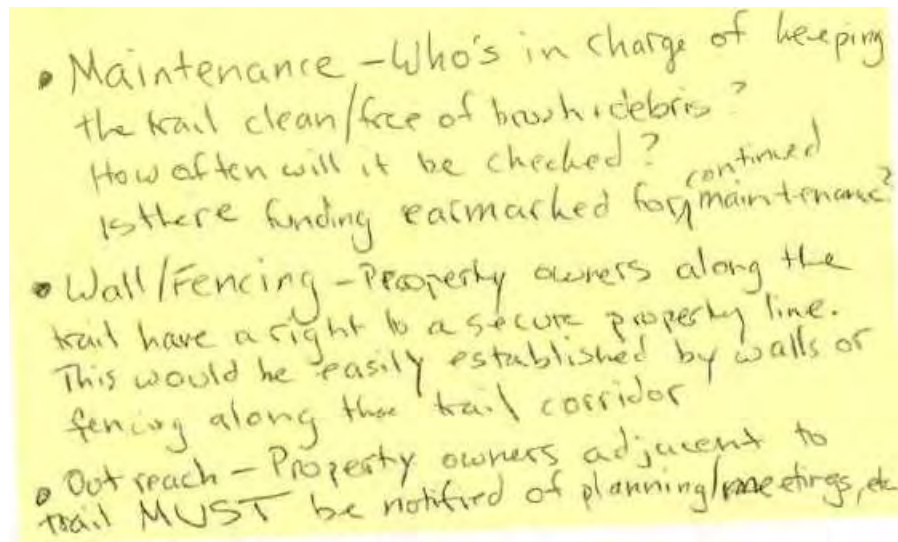 • Maintenance – Who's in charge of keeping
the trail clean/free of brush + debris?
How often will it be checked?
Is there funding earmarked for continued maintenance?
• Wall/Fencing – Property owners along the
trail have a right to a secure property line.
This would be easily established by walls or
fencing along the trail corridor
• Outreach – Property owners adjacent to
trail MUST be notified of planning/meetings, etc